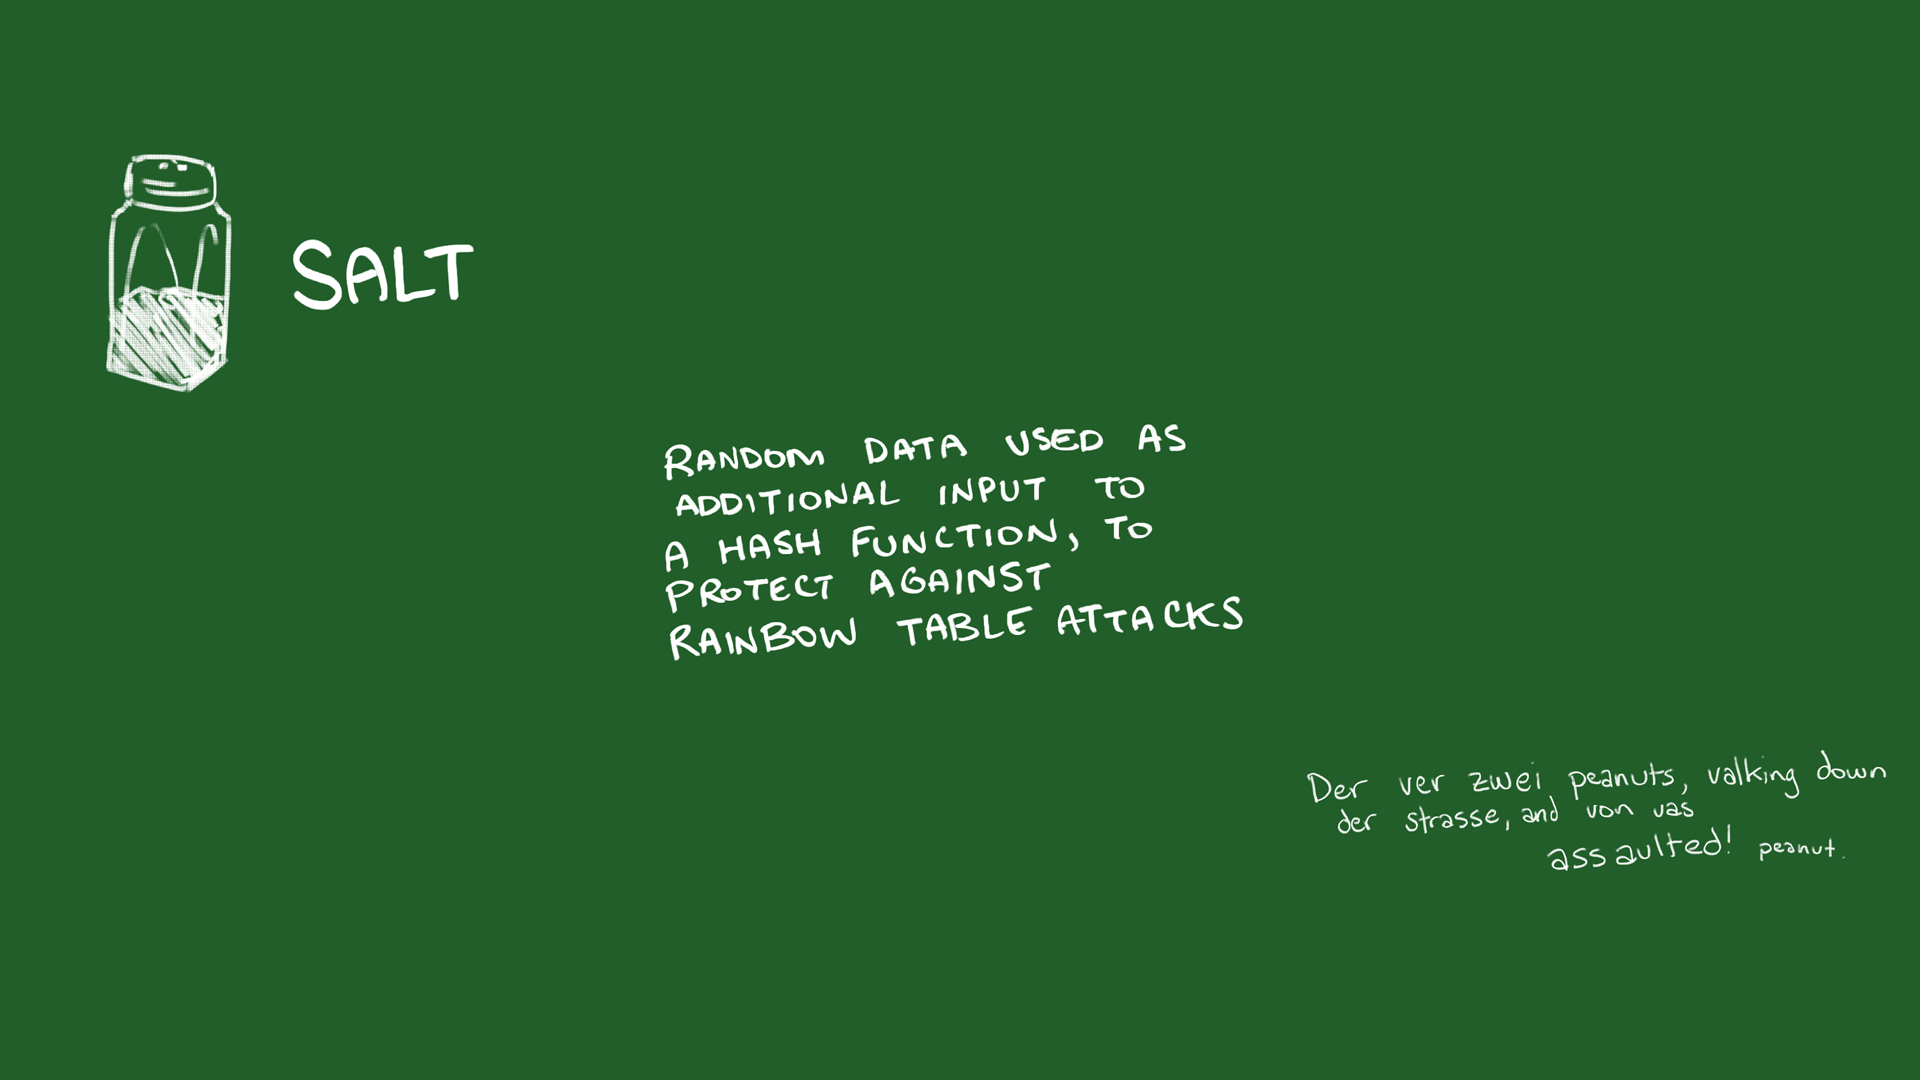 SALT
RANDOM DATA USED AS
ADDITIONAL INPUT TO
A HASH FUNCTION, TO
PROTECT AGAINST
RAINBOW TABLE ATTACKS
Der ver zwei peanuts, valking down
der strasse, and von vas
assaulted! peanut.